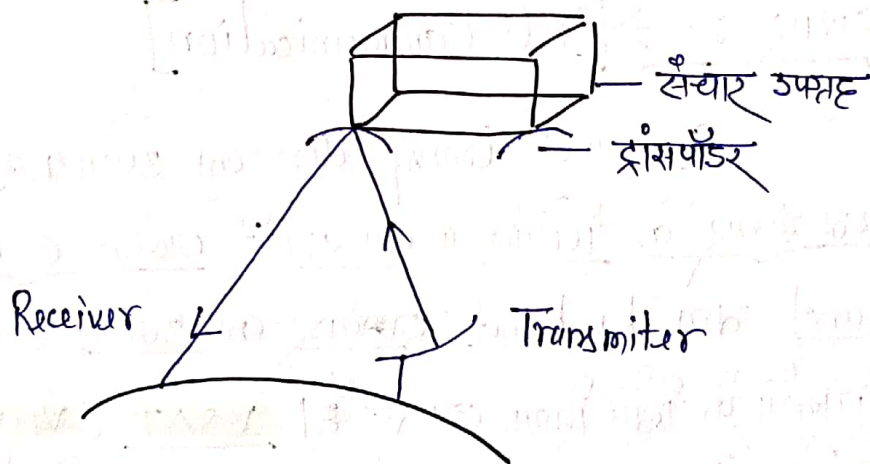 संचार उपग्रह
ट्रांसपोंडर
Receiver
Transmiter